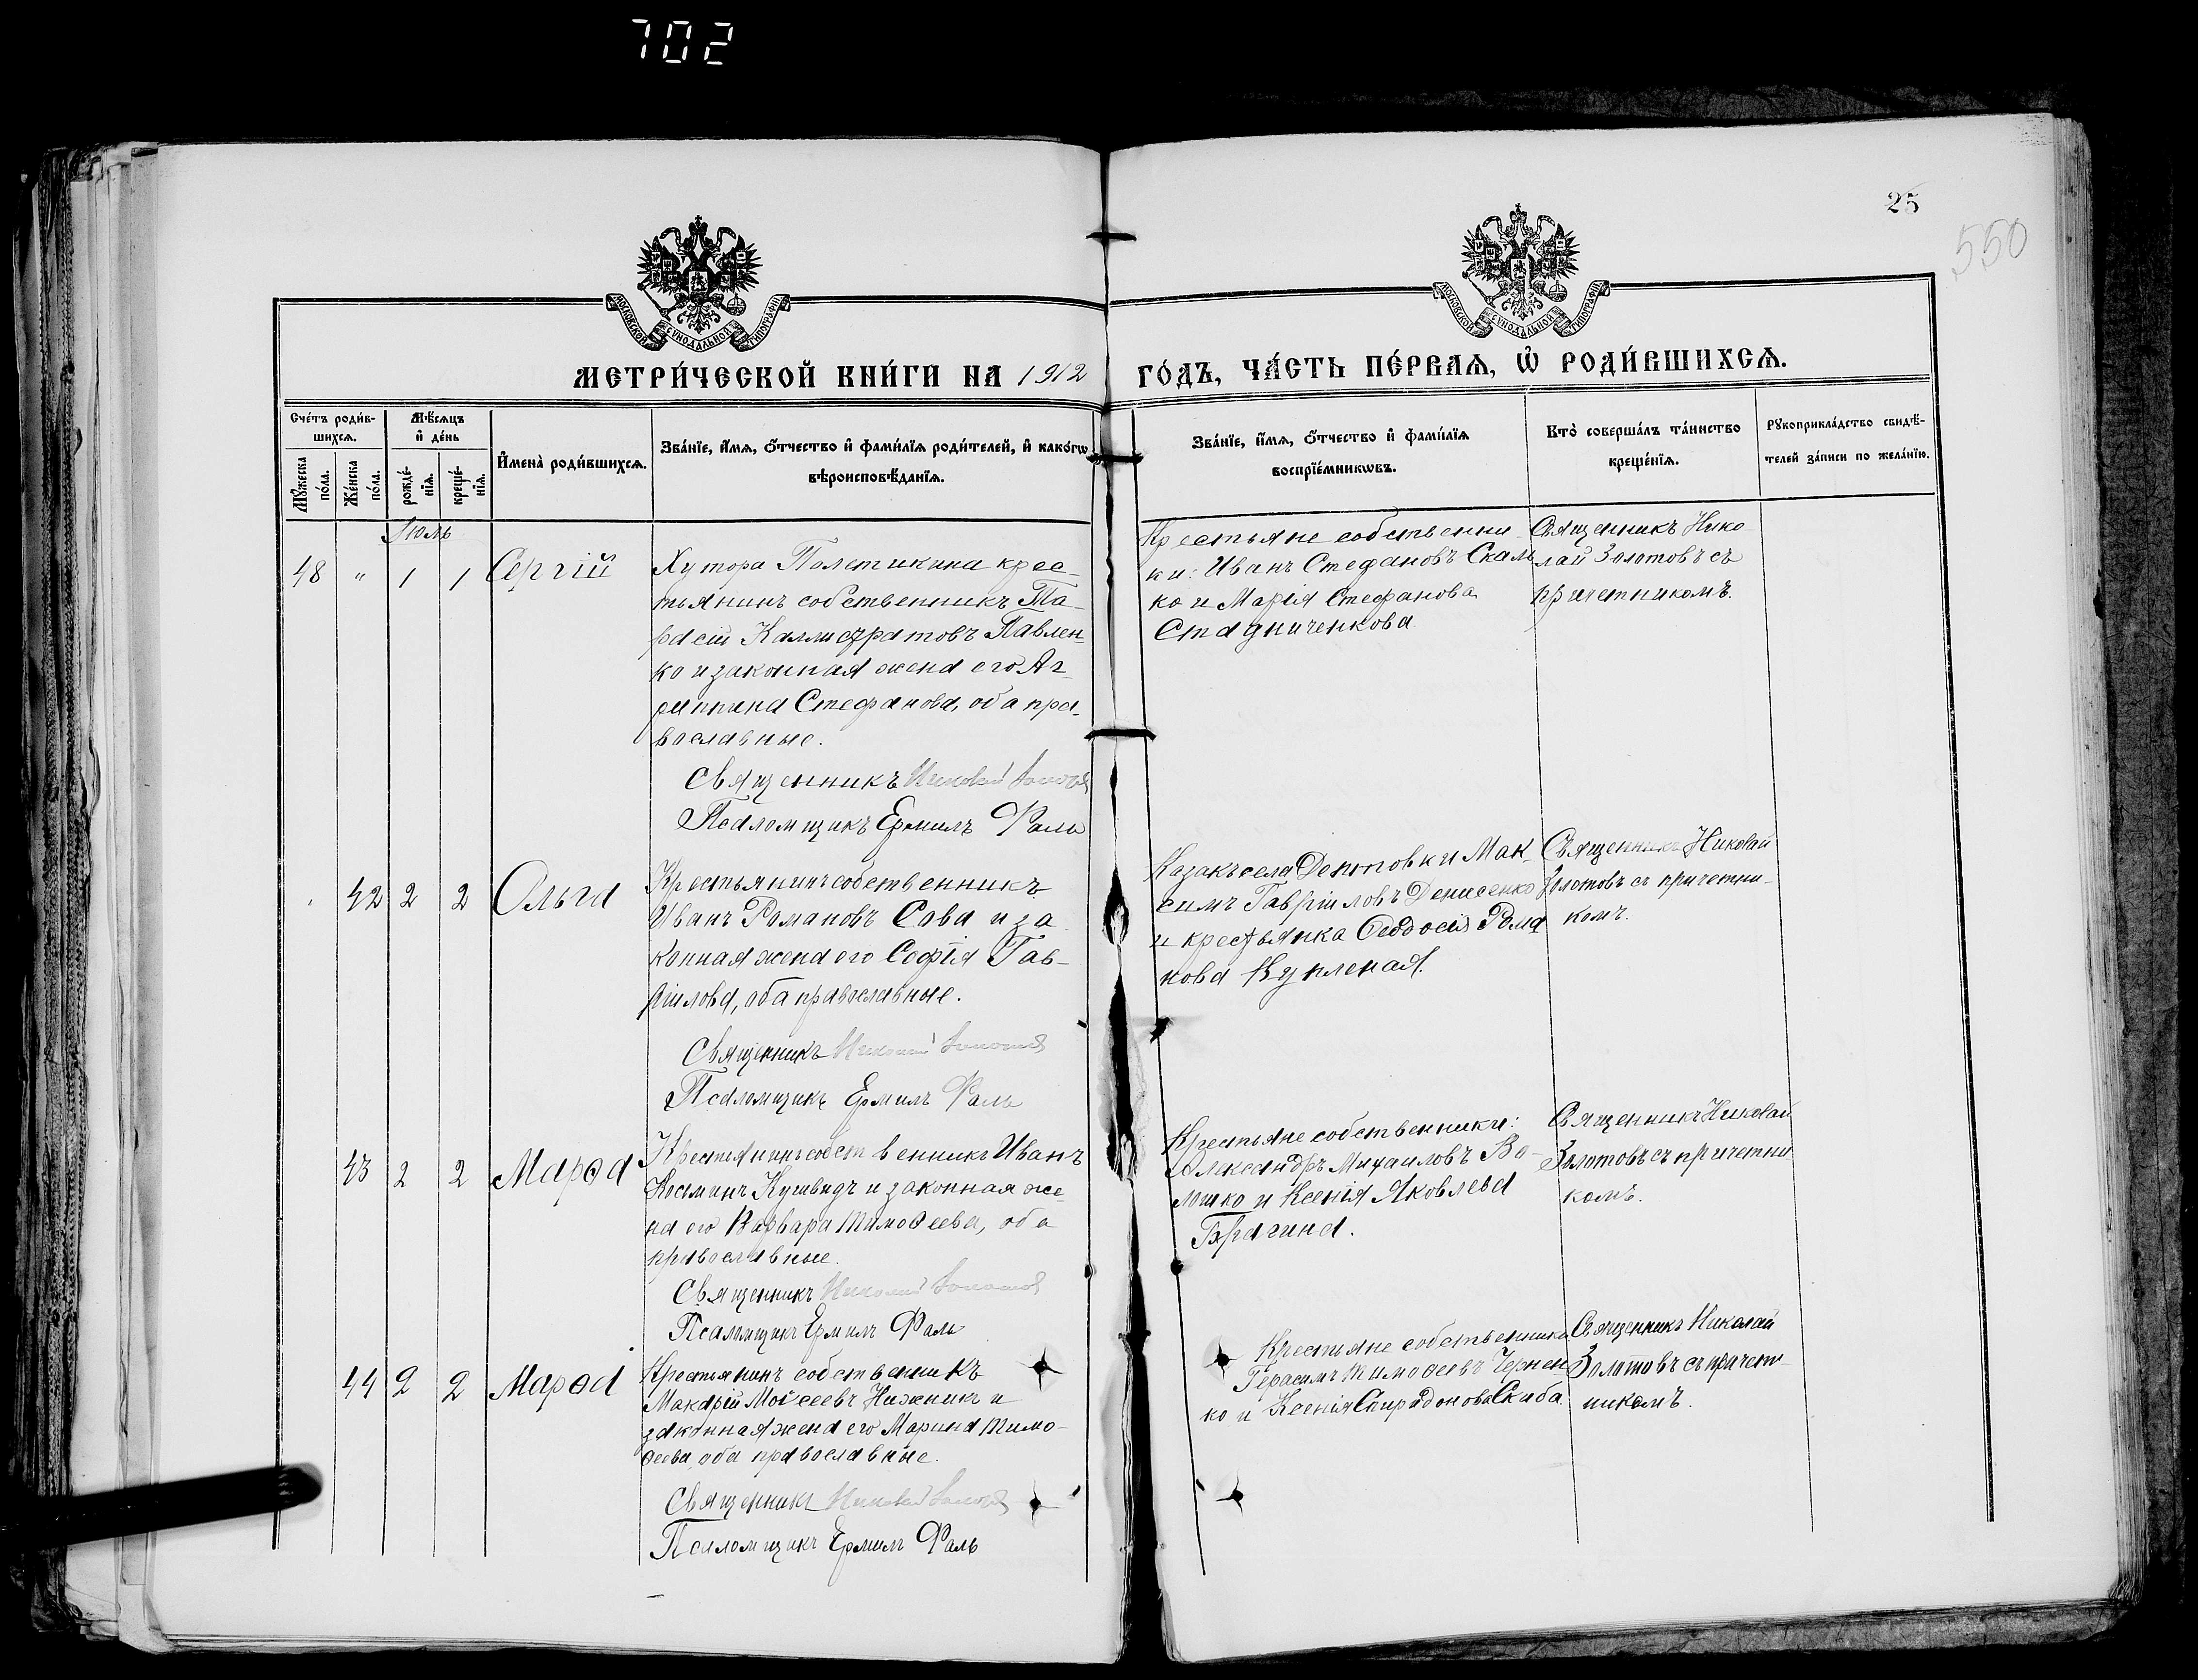 702
25
550
МОСКОВСКОЙ СУНОДАЛЬНОЙ ТИПОГРАФІИ
МОСКОВСКОЙ СУНОДАЛЬНОЙ ТИПОГРАФІИ
МЕТРИ́ЧЕСКОЙ КНИ́ГИ НА 1912 ГО́ДЪ, ЧА́СТЬ ПЕ́РВАѦ, Ѡ҆ РОДИ́ВШИХСѦ.
Сче́тъ роди́в-
шихсѧ.
Мѣ́сѧцъ
и҆ де́нь
Мꙋ́жеска
по́ла.
Же́нска
по́ла.
рожде́-
нїѧ.
креще́-
нїѧ.
И҆мена̀ роди́вшихсѧ.
Зва́нїе, и҆́мѧ, ѻ҆́тчество и҆ фами́лїѧ роди́телей, и҆ како́гѡ
вѣроисповѣ́данїѧ.
Зва́нїе, и҆́мѧ, ѻ҆́тчество и҆ фами́лїѧ
воспрїе́мникѡвъ.
Кто̀ соверша́лъ та́инство
креще́нїѧ.
Рꙋкоприкла́дство свидѣ́-
телей за́писи по жела́нїю.
Іюль
48 " 1 1 Сергій
Хутора Полетикина крес-
тьянинъ собственникъ Та-
расій Каллистратовъ Павлен-
ко и законная жена его Аг-
риппина Стефанова, оба пра-
вославные.
Священникъ Николай Золотов
Псаломщикъ Ермилъ Фаль
Крестьяне собственни
ки: Иванъ Стефановъ Скаль
ко и Марія Стефанова
Стадниченкова
Священникъ Нико
лай Золотовъ съ
причетникомъ.
42 2 2 Ольга
Крестьянинъ собственникъ
Иванъ Романовъ Сова и за
конная жена его Софія Гав-
ріилова, оба православные.
Священникъ Николай Золотов
Псаломщикъ Ермилъ Фаль
Казакъ села Депютовки Мак-
симъ Гавріиловъ Денисенко
и крестьянка Феодосія Рома
нова Купленая.
Священникъ Николай
Золотовъ съ причетни-
комъ.
43 2 2 Марѳа
Крестьянинъ собственникъ Иванъ
Косминъ Кушвидъ и законная же
на его Варвара Тимоѳеева, оба
православные.
Священникъ Николай Золотов
Псаломщикъ Ермилъ Фаль
Крестьяне собственники:
Александръ Михаиловъ Во-
лошко и Ксенія Яковлева
Брагина.
Священникъ Николай
Золотовъ съ причетни
комъ.
44 2 2 Марѳа
Крестьянинъ собственникъ
Макарій Моѵсеевъ Нижникъ и
законная жена его Марина Тимо-
ѳеева, оба православные.
Священникъ Николай Золотов
Псаломщикъ Ермилъ Фаль
Крестьяне собственники
Герасимъ Тимоѳеевъ Чернен
ко и Ксенія Спиридонова Скиба.
Священникъ Николай
Золотовъ съ причет-
никомъ.